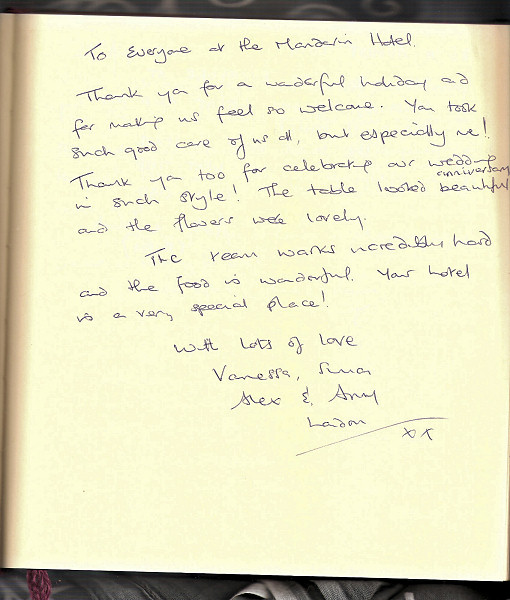 To Everyone at the Mandarin Hotel.
Thank you for a wonderful holiday and
for making us feel so welcome. You took
such good care of us all, but especially me!
Thank you too for celebrating our wedding
anniversary
in such style! The table looked beautiful
and the flowers were lovely.
The team works incredibly hard
and the food is wonderful. Your hotel
is a very special place!
With lots of love
Vanessa, Simon
Alex & Amy
London
xx